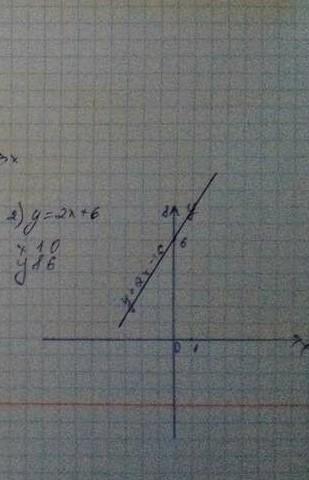 3x
2) y=2x+6
x 1 0
y 8 6
8
y
6
y=2x+6
0 1
x